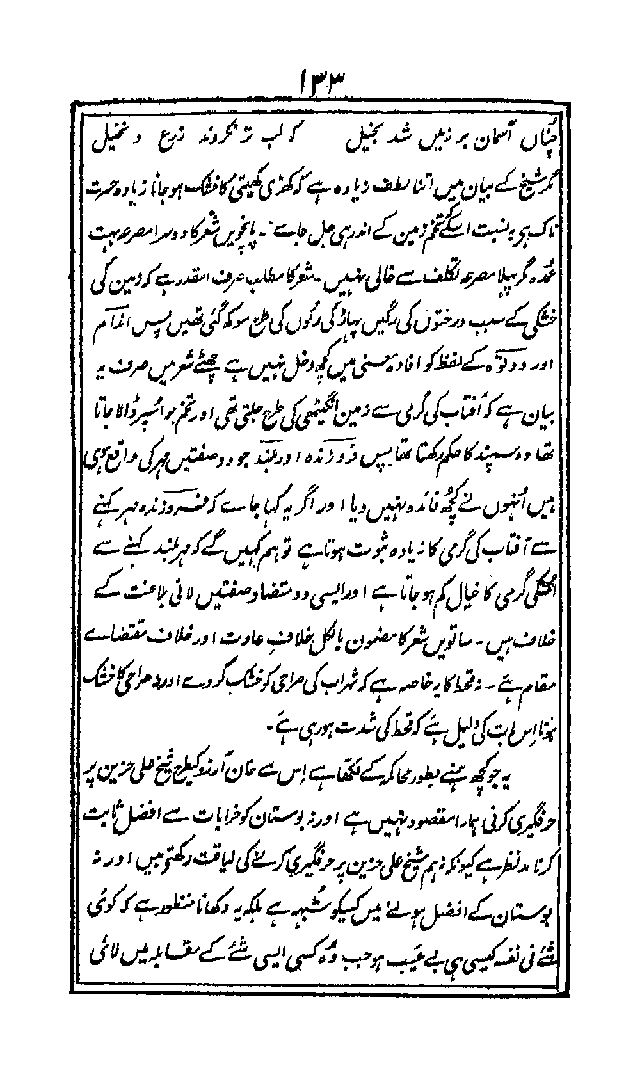 ۱۳۳
چناں آسماں بر زمیں شد بخیل کہ لب تر نکردند زرع و نخیل
مگر شیخ کے بیان میں اتنا لطف زیادہ ہے کہ کھڑی کھیتی کا خشک ہو جانا زیادہ حسرت
ناک ہے بہ نسبت اسکے کہ تخم زمین کے اندر ہی جل جائے۔ پانچویں شعر کا دوسرا مصرعہ بہت
عمدہ مگر پہلا مصرعہ تکلف سے خالی نہیں۔ شعر کا مطلب صرف اسقدر ہے کہ زمین کی
خشکی کے سبب درختوں کی رگیں پہاڑ کی رگوں کی طرح سوکھ گئی تھیں پس اندام
اور دد کے لفظ کو افادہ معنی میں کچھ دخل نہیں ہے چھٹے شعر میں صرف یہ
بیان ہے کہ آفتاب کی گرمی سے زمین انگیٹھی کی طرح جلتی تھی اور تخم جو اسپر ڈالا جاتا
تھا وہ سپند کا حکم رکھتا تھا پس فروزندہ اور بلند جو دو صفتیں مہر کی واقع ہوئی
ہیں اُنہوں نے کچھ فائدہ نہیں دیا اور اگر یہ کہا جائے کہ فروزندہ مہر کہنے
سے آفتاب کی گرمی کا زیادہ ثبوت ہوتا ہے تو ہم کہیں گے کہ مہر بلند کہنے سے
اُسکی گرمی کا خیال کم ہو جاتا ہے اور ایسی دو متضاد صفتیں لانی بلاغت کے
خلاف ہیں۔ ساتویں شعر کا مضمون بالکل خلافِ عادت اور خلاف مقتضاے
مقام ہے۔ نہ قحط کا یہ خاصہ ہے کہ شراب کی صراحی کو خشک کر دے اور نہ صراحی کا خشک
ہونا اِس بات کی دلیل ہے کہ قحط کی شدت ہو رہی ہے۔
یہ جو کچھ ہمنے بطور محاکمہ کے لکھا ہے اِس سے خان آرزو کیطرح شیخ علی حزیں پر
حرفگیری کرنی ہمارا مقصود نہیں ہے اور نہ بوستان کو خرابات سے افضل ثابت
کرنا مدنظر ہے کیونکہ نہ ہم شیخ علی حزیں پر حرفگیری کرنے کی لیاقت رکھتے ہیں اور نہ
بوستان کے افضل ہونے میں کسیکو شُبہہ ہے بلکہ یہ دکھانا منظور ہے کہ کوئی
شئے فی نفسہ کیسی ہی بے عیب ہو جب وہ کسی ایسی شئے کے مقابلہ میں لائی